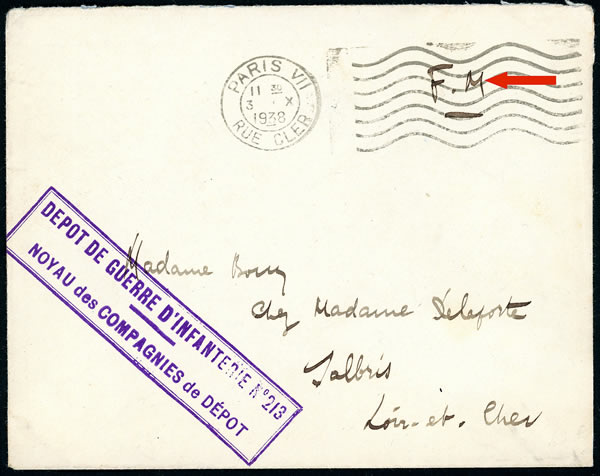 PARIS VII
11 30
3 · X
1938
RUE CLER
F. M
DEPOT DE GUERRE D'INFANTERIE N°213
NOYAU des COMPAGNIES de DÉPOT
Madame
Chez Madame Deleforte
Salbris
Loir-et-Cher